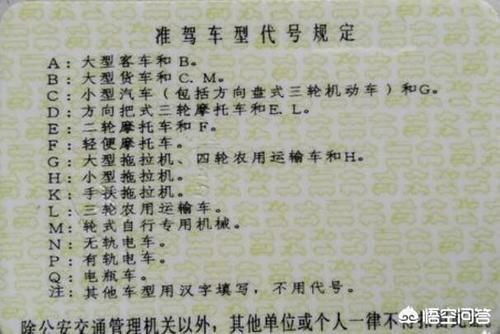 准驾车型代号规定
A：大型客车和B。
B：大型货车和C.M。
C：小型汽车（包括方向盘式三轮机动车）和G。
D：方向把式三轮摩托车和E.L。
E：二轮摩托车和F。
F：轻便摩托车。
G：大型拖拉机、四轮农用运输车和H。
H：小型拖拉机。
K：手扶拖拉机。
L：三轮农用运输车。
M：轮式自行专用机械。
N：无轨电车。
P：有轨电车。
Q：电瓶车。
注：其他车型用汉字填写，不用代号。
除公安交通管理机关以外，其他单位或个人一律不得
悟空问答